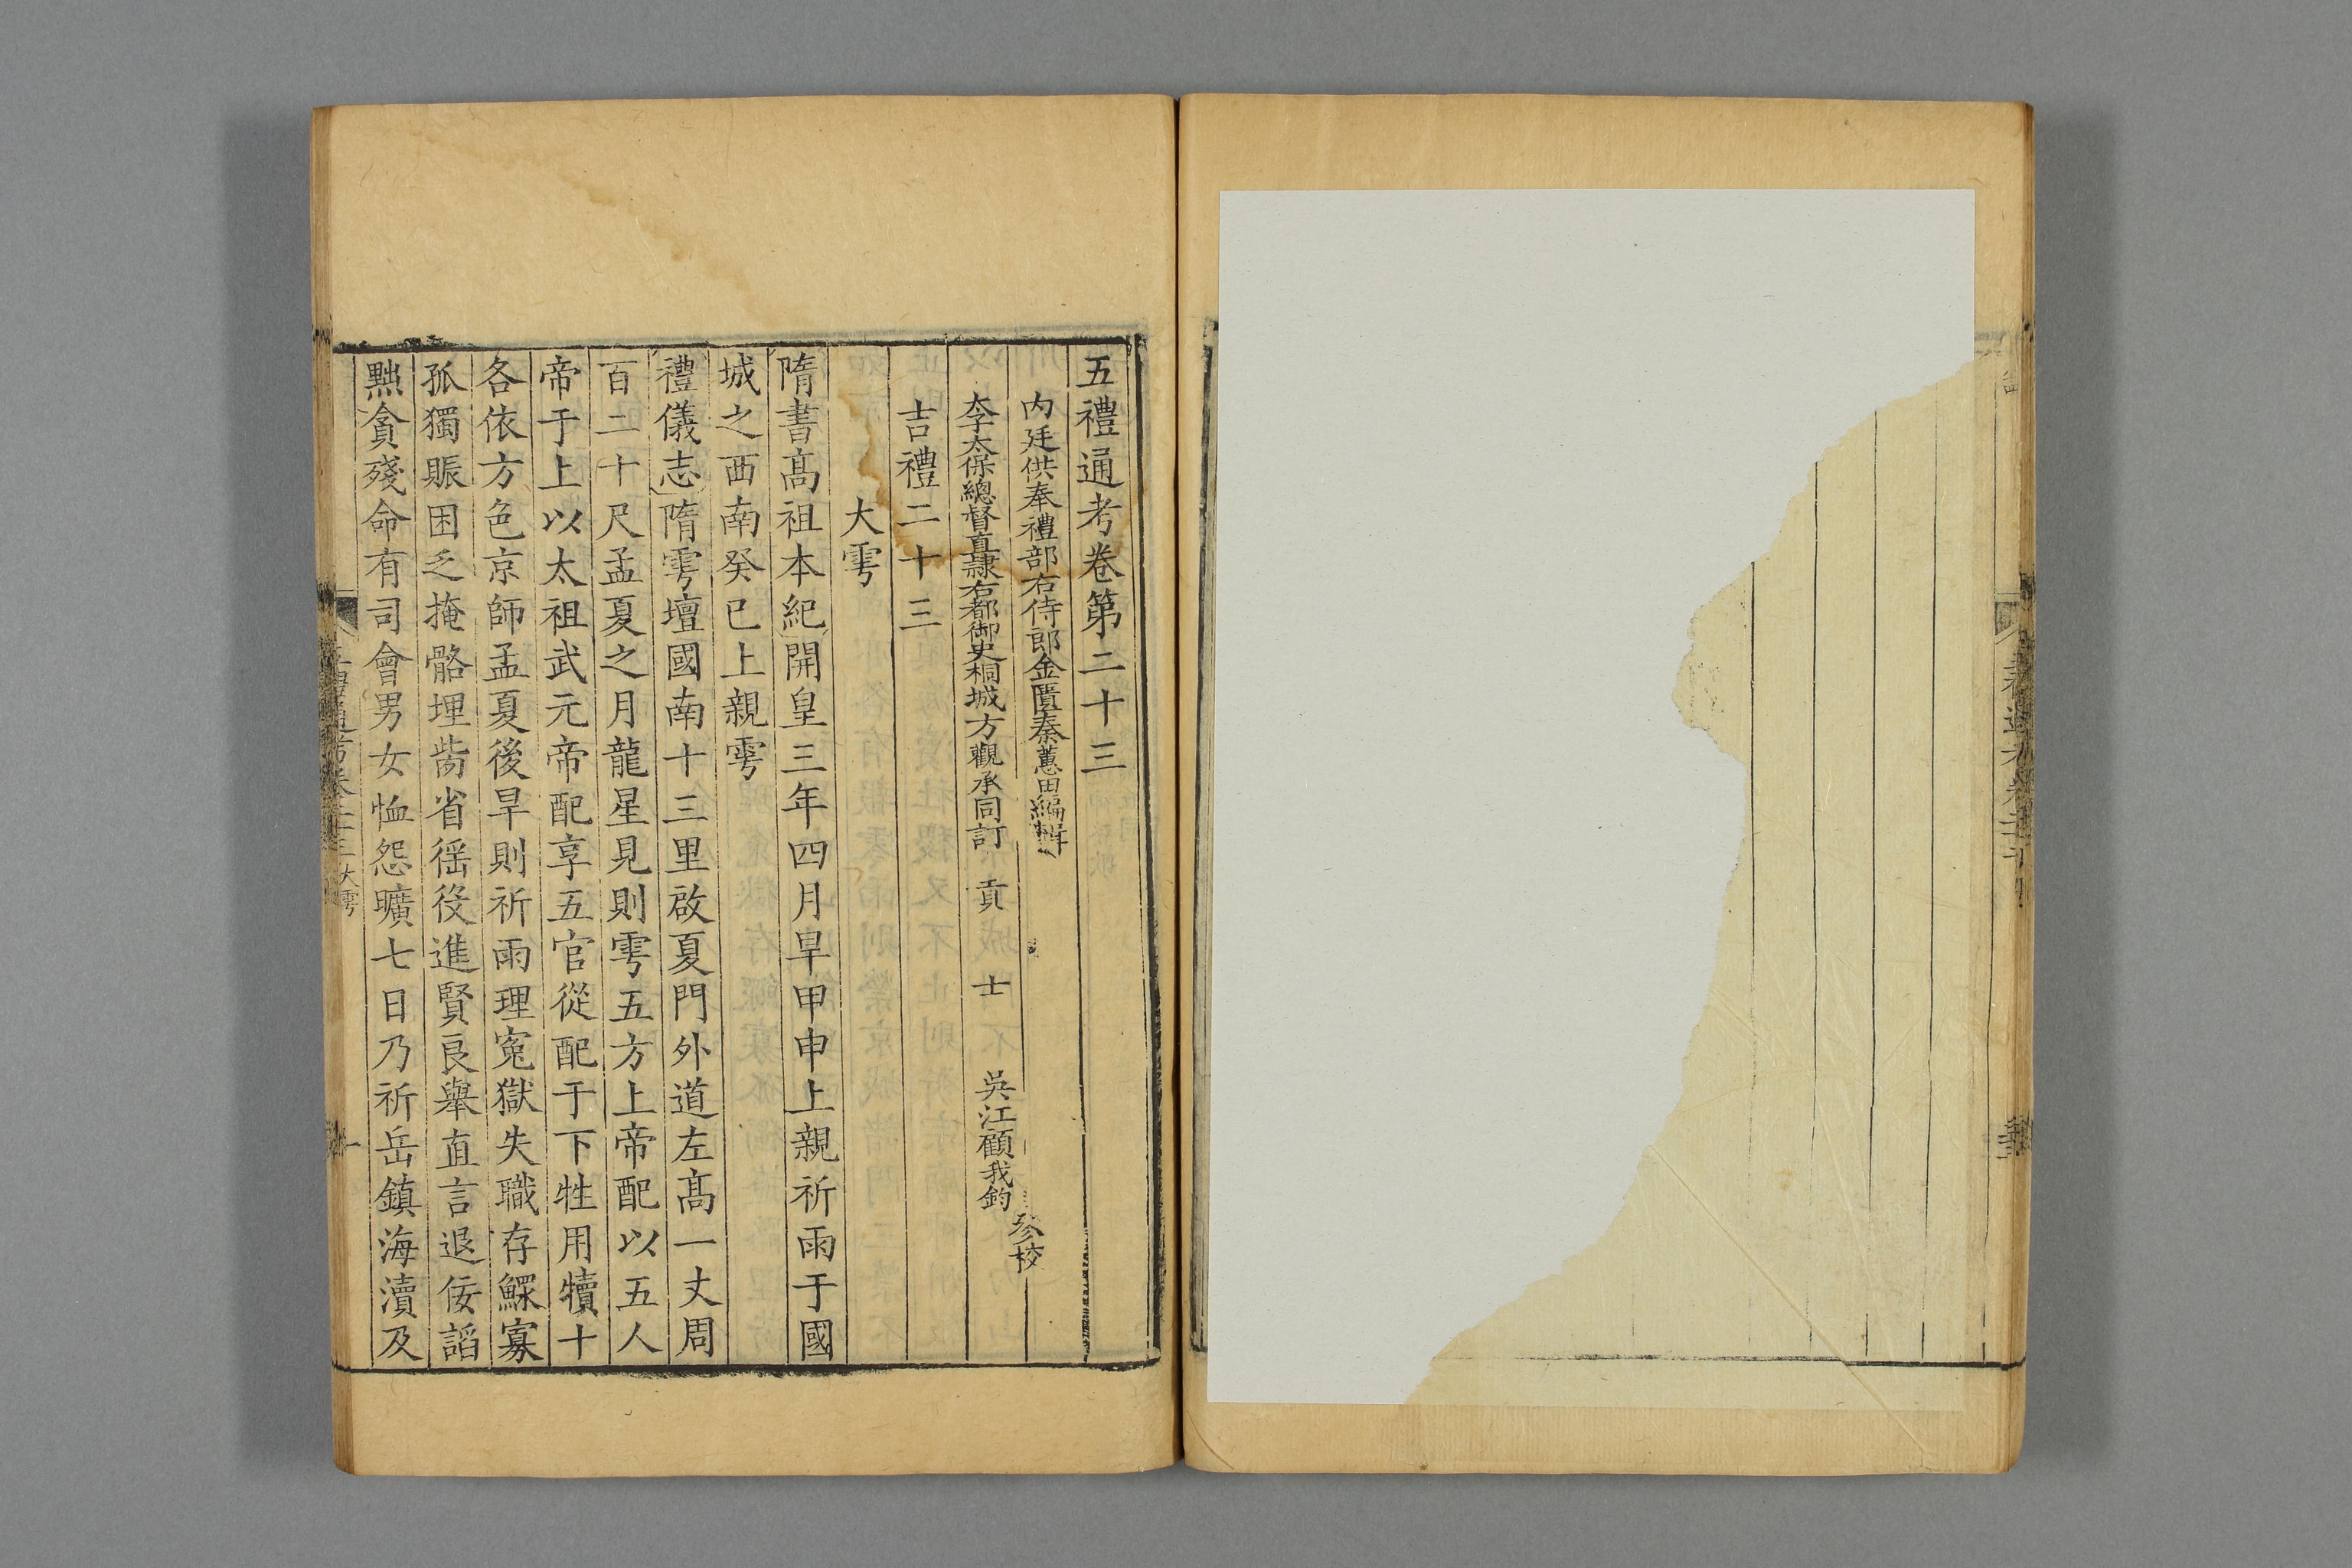 五禮通考卷第二十三
內廷供奉禮部右侍郎金匱秦蕙田編輯
太子太保總督直隸右都御史桐城方觀承同訂 貢士 吳江顧我鈞 參校
吉禮二十三
大雩
隋書高祖本紀開皇三年四月旱甲申上親祈雨于國
城之西南癸巳上親雩
禮儀志隋雩壇國南十三里啟夏門外道左高一丈周
百二十尺孟夏之月龍星見則雩五方上帝配以五人
帝于上以太祖武元帝配享五官從配于下牲用犢十
各依方色京師孟夏後旱則祈雨理寃獄失職存鰥寡
孤獨賑困乏掩骼埋胔省徭役進賢良舉直言退佞諂
黜貪殘命有司會男女恤怨曠七日乃祈岳鎮海瀆及
五禮通考卷二十三 大雩 一